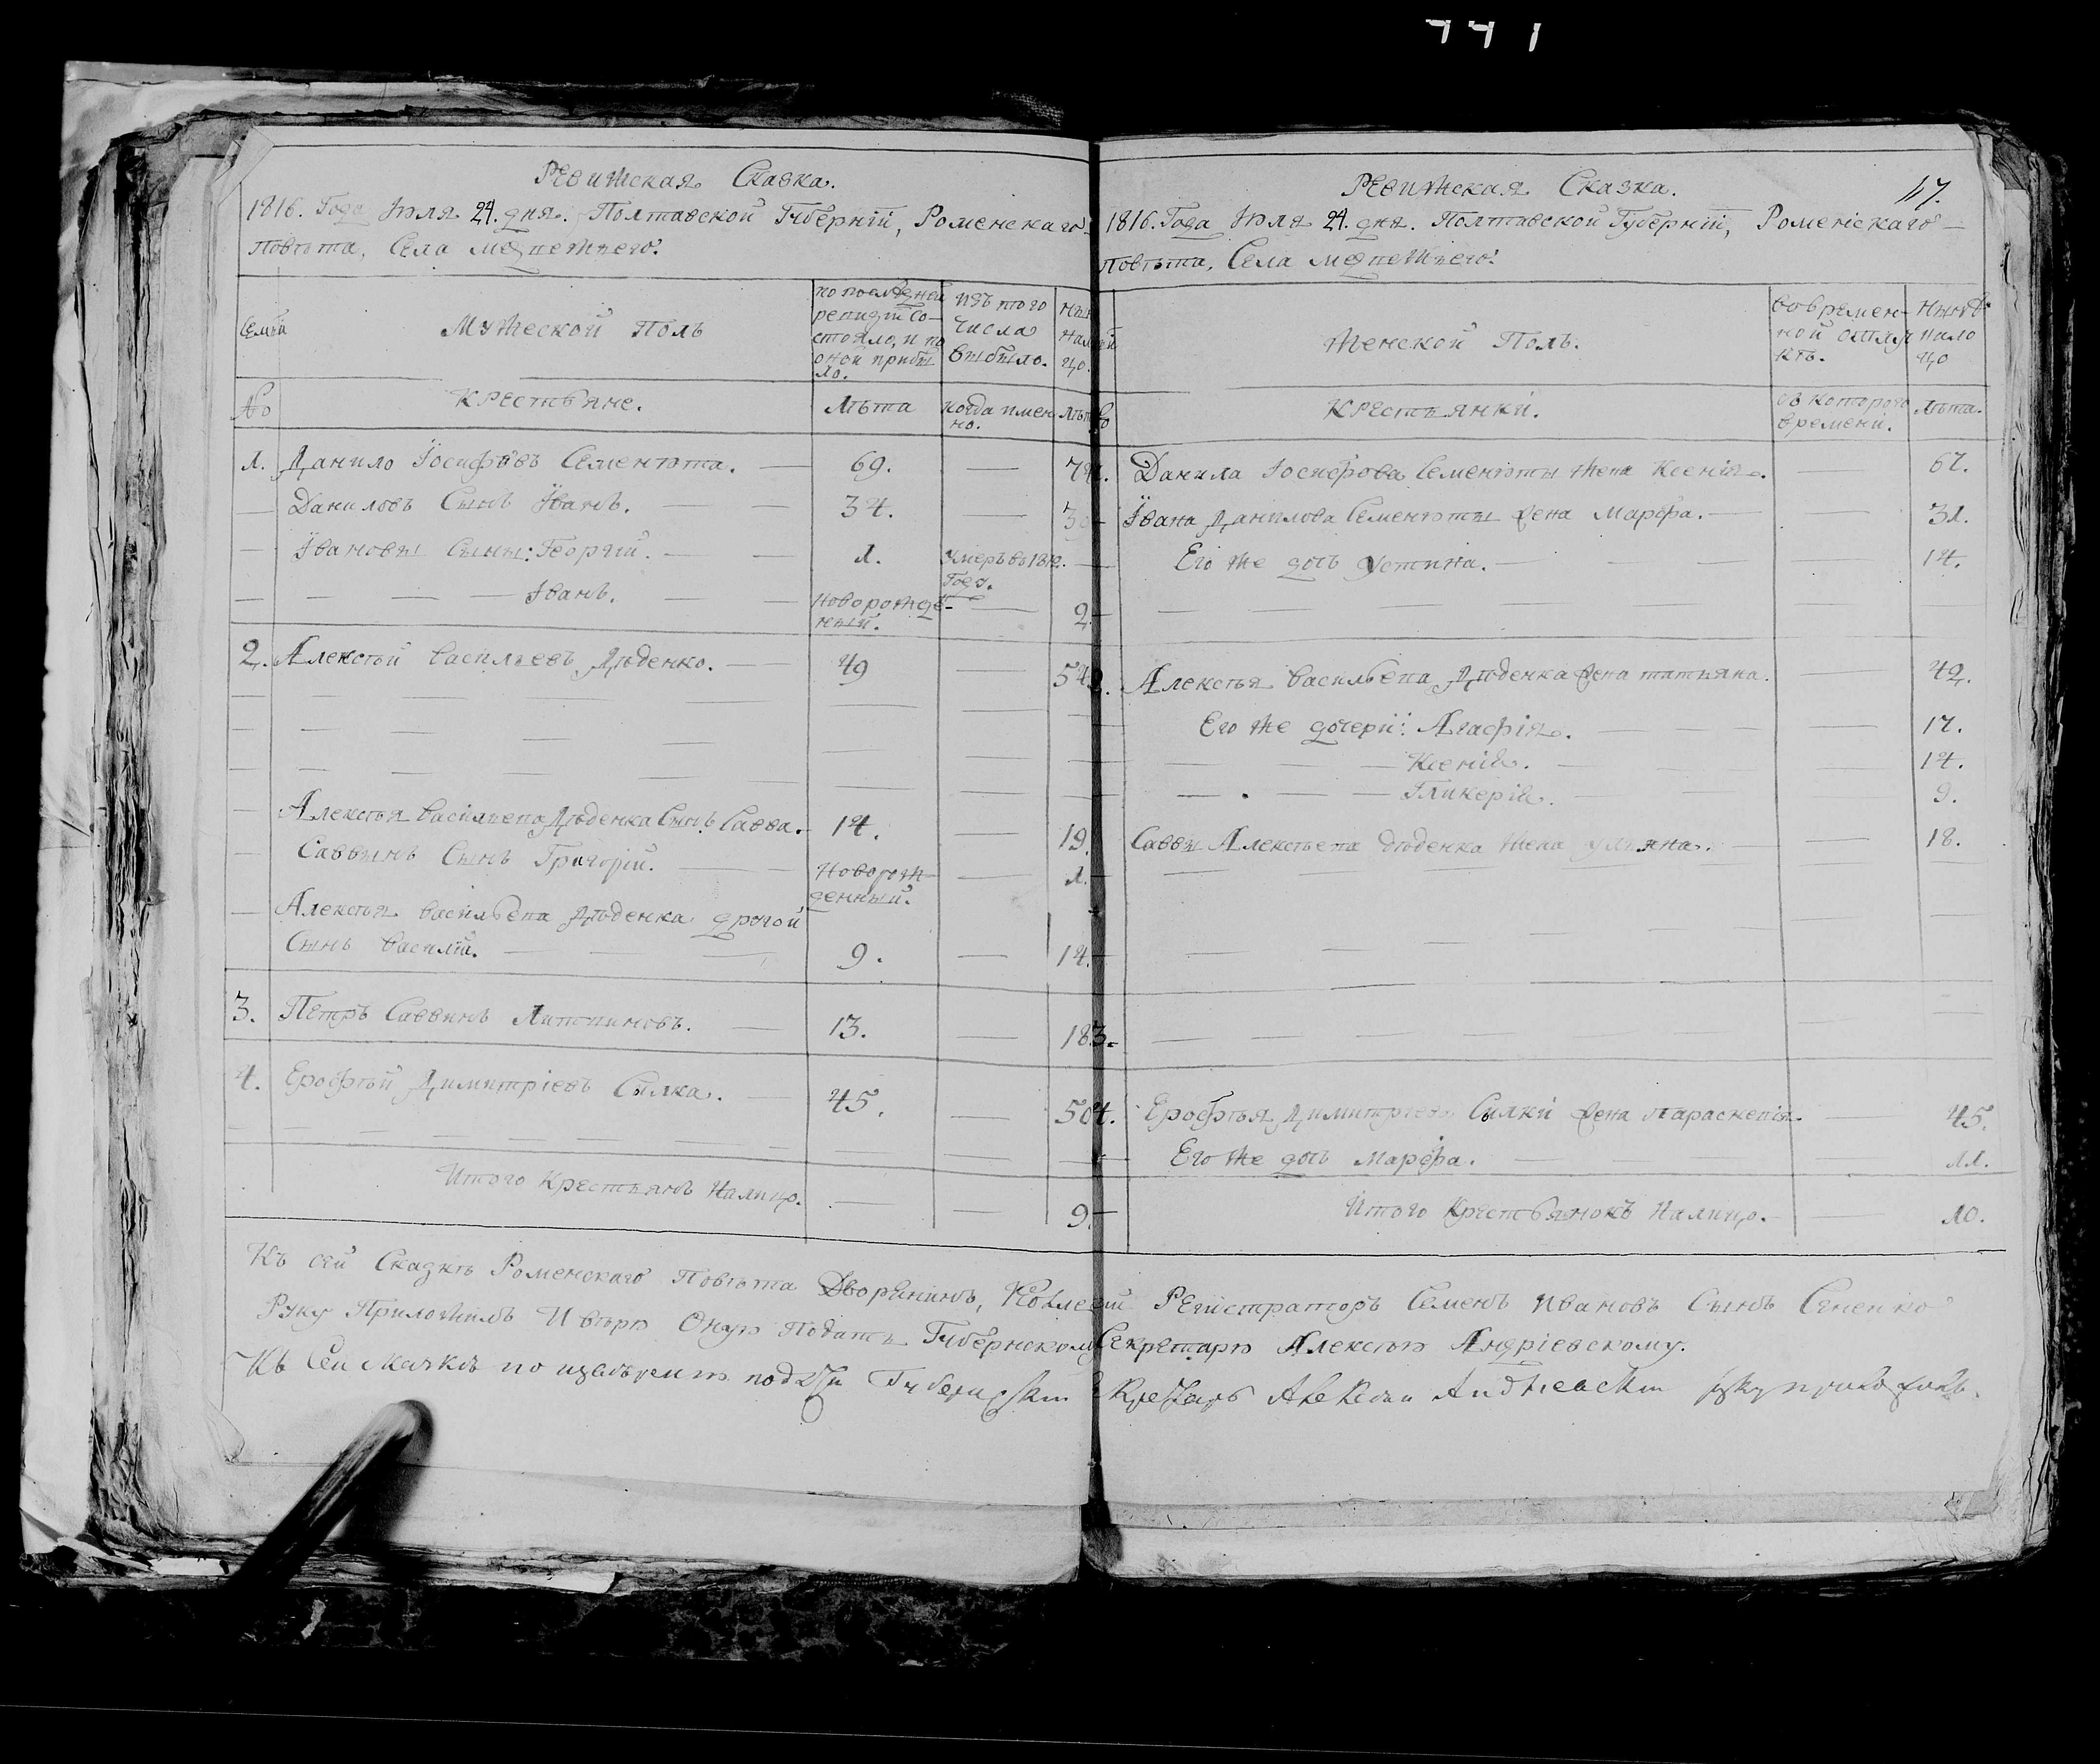 441
Ревижская Сказка.
1816. Года Июля 24. дня. Полтавской Губернїи, Роменскаго
повѣта, Села медвежьего:
Семьи
Мужеской Полъ
по последней
ревизїи со-
стояло, и по
оной прибы
ло.
изъ того
числа
выбыло.
Ныне
на ли
цо.
№
Крестьяне.
Лѣта
когда имен
но.
Лѣта
1. Данило Іосифовъ Семенюта. — 69. — 74.
Даниловъ Сынъ Їванъ. — 34. —
Ївановы Сыны: Георгий. — 1. умеръ въ 1812. —
Году.
— Їванъ. — Новорожде- — 2
нный.
2. Алексѣй васильевъ Дѣденко. — 49 — 54
Алексѣя васильева Дѣденка Сынъ Савва. 14. — 19.
Саввинъ Сынъ Григорїй. — Новорож- — 1.
денный.
Алексѣя васильева Дѣденка другой
Сынъ василїй. — 9. — 14.
3. Петръ Саввинъ Литвиновъ. — 13. — 18
4. Ерофѣй Димитрїевъ Сылка. — 45. — 50
Итого Крестьянъ Налицо. — — 9.
Ревижская Сказка.
47.
1816. Года Июля 24. дня. Полтавской Губернїи, Роменскаго
повѣта, Села медвежьего:
Женской Полъ.
во времен-
ной отлу
кѣ.
Нынѣ
на ли
цо
Крестьянки.
съ которого
времени.
лѣта.
Данила Іосифова Семенюты жена Ксенїя. — 67.
Ївана Данилова Семенюты жена Марфа. — 31.
Его же дочь Устина. — 14.
2. Алексѣя васильева Дѣденка жена татьяна. — 42.
Его же дочери: Агафїя. — 17.
— Ксенїя. — 14.
— Гликерїя. — 9.
Саввы Алексѣева дѣденка жена ульяна. — 18.
3.
4. Ерофѣя Димитрїева Сылки жена параскевїя. — 45.
Его же дочь марфа. — 11.
Итого Крестьянокъ Налицо. — 10.
Къ сей Сказкѣ Роменскаго повѣта Дворянинъ, Коллегїи Регистраторъ Семенъ ивановъ Сынъ
Руку Приложилъ И вѣрю Оную подать Губернскому Секретарю Алексѣю Андрїевскому.
Къ Сей Губернский Секретарь Алексей Андриевский руку приложилъ.